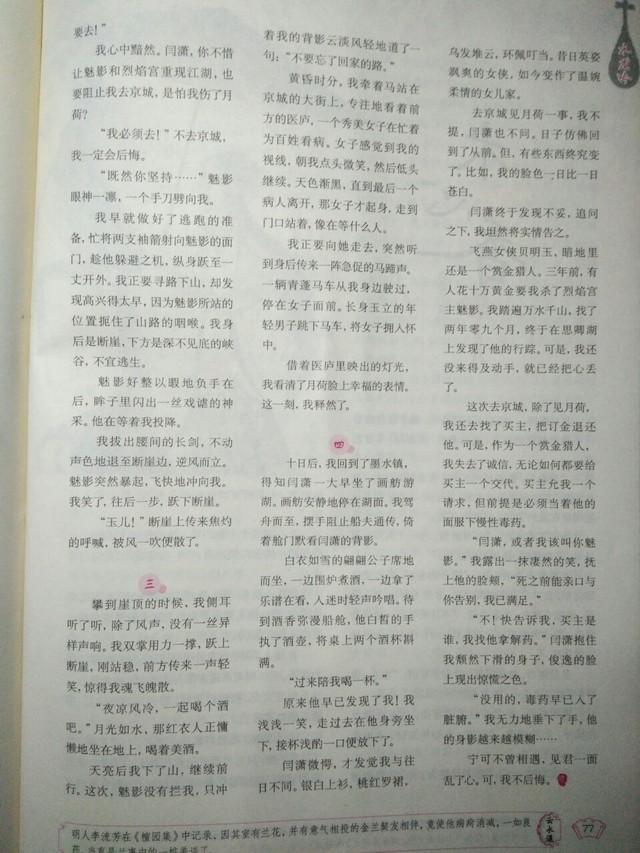 要去！”
我心中黯然。闫潇，你不惜
让魅影和烈焰宫重现江湖，也
要阻止我去京城，是怕我伤了月
荷？
“我必须去！”不去京城，
我一定会后悔。
“既然你坚持……”魅影
眼神一凛，一个手刀劈向我。
我早就做好了逃跑的准
备，忙将两支袖箭射向魅影的面
门，趁他躲避之机，纵身跃至一
丈开外。我正要寻路下山，却发
现高兴得太早，因为魅影所站的
位置扼住了山路的咽喉。我身
后是断崖，下方是深不见底的峡
谷，不宜逃生。
魅影好整以暇地负手在
后，眸子里闪出一丝戏谑的神
采。他在等着我投降。
我拔出腰间的长剑，不动
声色地退至断崖边，逆风而立。
魅影突然暴起，飞快地冲向我。
我笑了，往后一步，跃下断崖。
“玉儿！”断崖上传来焦灼
的呼喊，被风一吹便散了。
三
攀到崖顶的时候，我侧耳
听了听，除了风声，没有一丝异
样声响。我双掌用力一撑，跃上
断崖，刚站稳，前方传来一声轻
笑，惊得我魂飞魄散。
“夜凉风冷，一起喝个酒
吧。”月光如水，那红衣人正慵
懒地坐在地上，喝着美酒。
天亮后我下了山，继续前
行。这次，魅影没有拦我，只冲
着我的背影云淡风轻地道了一
句：“不要忘了回家的路。”
黄昏时分，我牵着马站在
京城的大街上，专注地看着前
方的医庐，一个秀美女子在忙着
为百姓看病。女子感觉到我的
视线，朝我点头微笑，然后低头
继续。天色渐黑，直到最后一个
病人离开，那女子才起身，走到
门口站着，像在等什么人。
我正要向她走去，突然听
到身后传来一阵急促的马蹄声。
一辆青蓬马车从我身边驶过，
停在女子面前。长身玉立的年
轻男子跳下马车，将女子拥入怀
中。
借着医庐里映出的灯光，
我看清了月荷脸上幸福的表情。
这一刻，我释然了。
四
十日后，我回到了墨水镇，
得知闫潇一大早坐了画舫游
湖。画舫安静地停在湖面。我驾
舟而至，摆手阻止船夫通传，倚
着舱门默看闫潇的背影。
白衣如雪的翩翩公子席地
而坐，一边围炉煮酒，一边拿了
乐谱在看，入迷时轻声吟唱。待
到酒香弥漫船舱，他白皙的手
执了酒壶，将桌上两个酒杯斟
满。
“过来陪我喝一杯。”
原来他早已发现了我！我
浅浅一笑，走过去在他身旁坐
下，接杯浅酌一口便放下了。
闫潇微愕，才发觉我与往
日不同。银白上衫，桃红罗裙，
乌发堆云，环佩叮当。昔日英姿
飒爽的女侠，如今变作了温婉
柔情的女儿家。
去京城见月荷一事，我不
提，闫潇也不问。日子仿佛回
到了从前。但，有些东西终究变
了。比如，我的脸色一日比一日
苍白。
闫潇终于发现不妥，追问
之下，我坦然将实情告之。
飞燕女侠贝明玉，暗地里
还是一个赏金猎人。三年前，有
人花十万黄金要我杀了烈焰宫
主魅影。我踏遍万水千山，找了
两年零九个月，终于在思卿湖
上发现了他的行踪。可是，我还
没来得及动手，就已经把心丢
了。
这次去京城，除了见月荷，
我还去找了买主，把订金退还
他。可是，作为一个赏金猎人，
我失去了诚信，无论如何都要给
买主一个交代。买主允我一个
请求，但前提是必须当着他的
面服下慢性毒药。
“闫潇，或者我该叫你魅
影。”我露出一抹凄然的笑，抚
上他的脸颊，“死之前能亲口与
你告别，我已满足。”
“不！快告诉我，买主是
谁，我找他拿解药。”闫潇抱住
我颓然下滑的身子，俊逸的脸
上现出惊慌之色。
“没用的，毒药早已入了
脏腑。”我无力地垂下了手，他
的身影越来越模糊……
宁可不曾相遇，见君一面
乱了心。可，我不后悔。
明人李流芳在《檀园集》中记录，因其室有兰花，并有意气相投的金兰契友相伴，竟使他病疴消减，一如良
云水谣
77